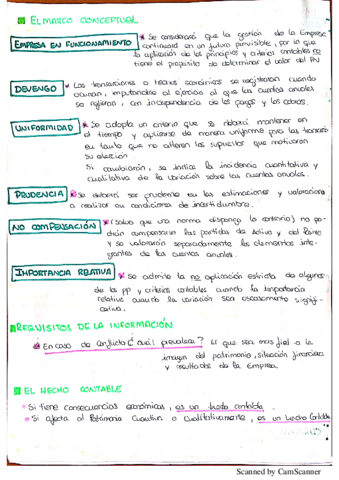 EL MARCO CONCEPTUAL
EMPRESA EN FUNCIONAMIENTO * Se considerará que la gestión de la Empresa
continuará en un futuro previsible, por lo que
la aplicación de los principios y criterios contables no
tiene el propósito de determinar el valor del PN
DEVENGO * Las transacciones o hechos económicos se registrarán cuando
ocurran, imputándose al ejercicio al que las cuentas anuales
se refieran, con independencia de los pagos y los cobros.
UNIFORMIDAD * Se adopta un criterio que se deberá mantener en
el tiempo y aplicarse de manera uniforme para las transacc
en tanto que no alteren los supuestos que motivaron
su elección.
Si cambiaran, se indica la incidencia cuantitativa y
cualitativa de la variación sobre las cuentas anuales.
PRUDENCIA * Se deberá ser prudente en las estimaciones y valoraciones
a realizar en condiciones de incertidumbre.
NO COMPENSACIÓN * (salvo que una norma disponga lo contrario) no po-
drán compensarse las partidas de Activo y del Pasivo
y se valorarán separadamente los elementos inte-
grantes de las cuentas anuales.
IMPORTANCIA RELATIVA * Se admite la no aplicación estricta de algunos
de los pp y criterios contables cuando la importancia
relativa cuando la variación sea escasamente signifi-
cativa.
REQUISITOS DE LA INFORMACIÓN
* En caso de conflicto ¿cuál prevalece? El que sea más fiel a la
imagen del patrimonio, situación financiera
y resultados de la Empresa.
EL HECHO CONTABLE
* Si tiene consecuencias económicas, es un hecho contable.
* Si afecta al Patrimonio Cuantitativa o Cualitativamente, es un Hecho Contable
Scanned by CamScanner